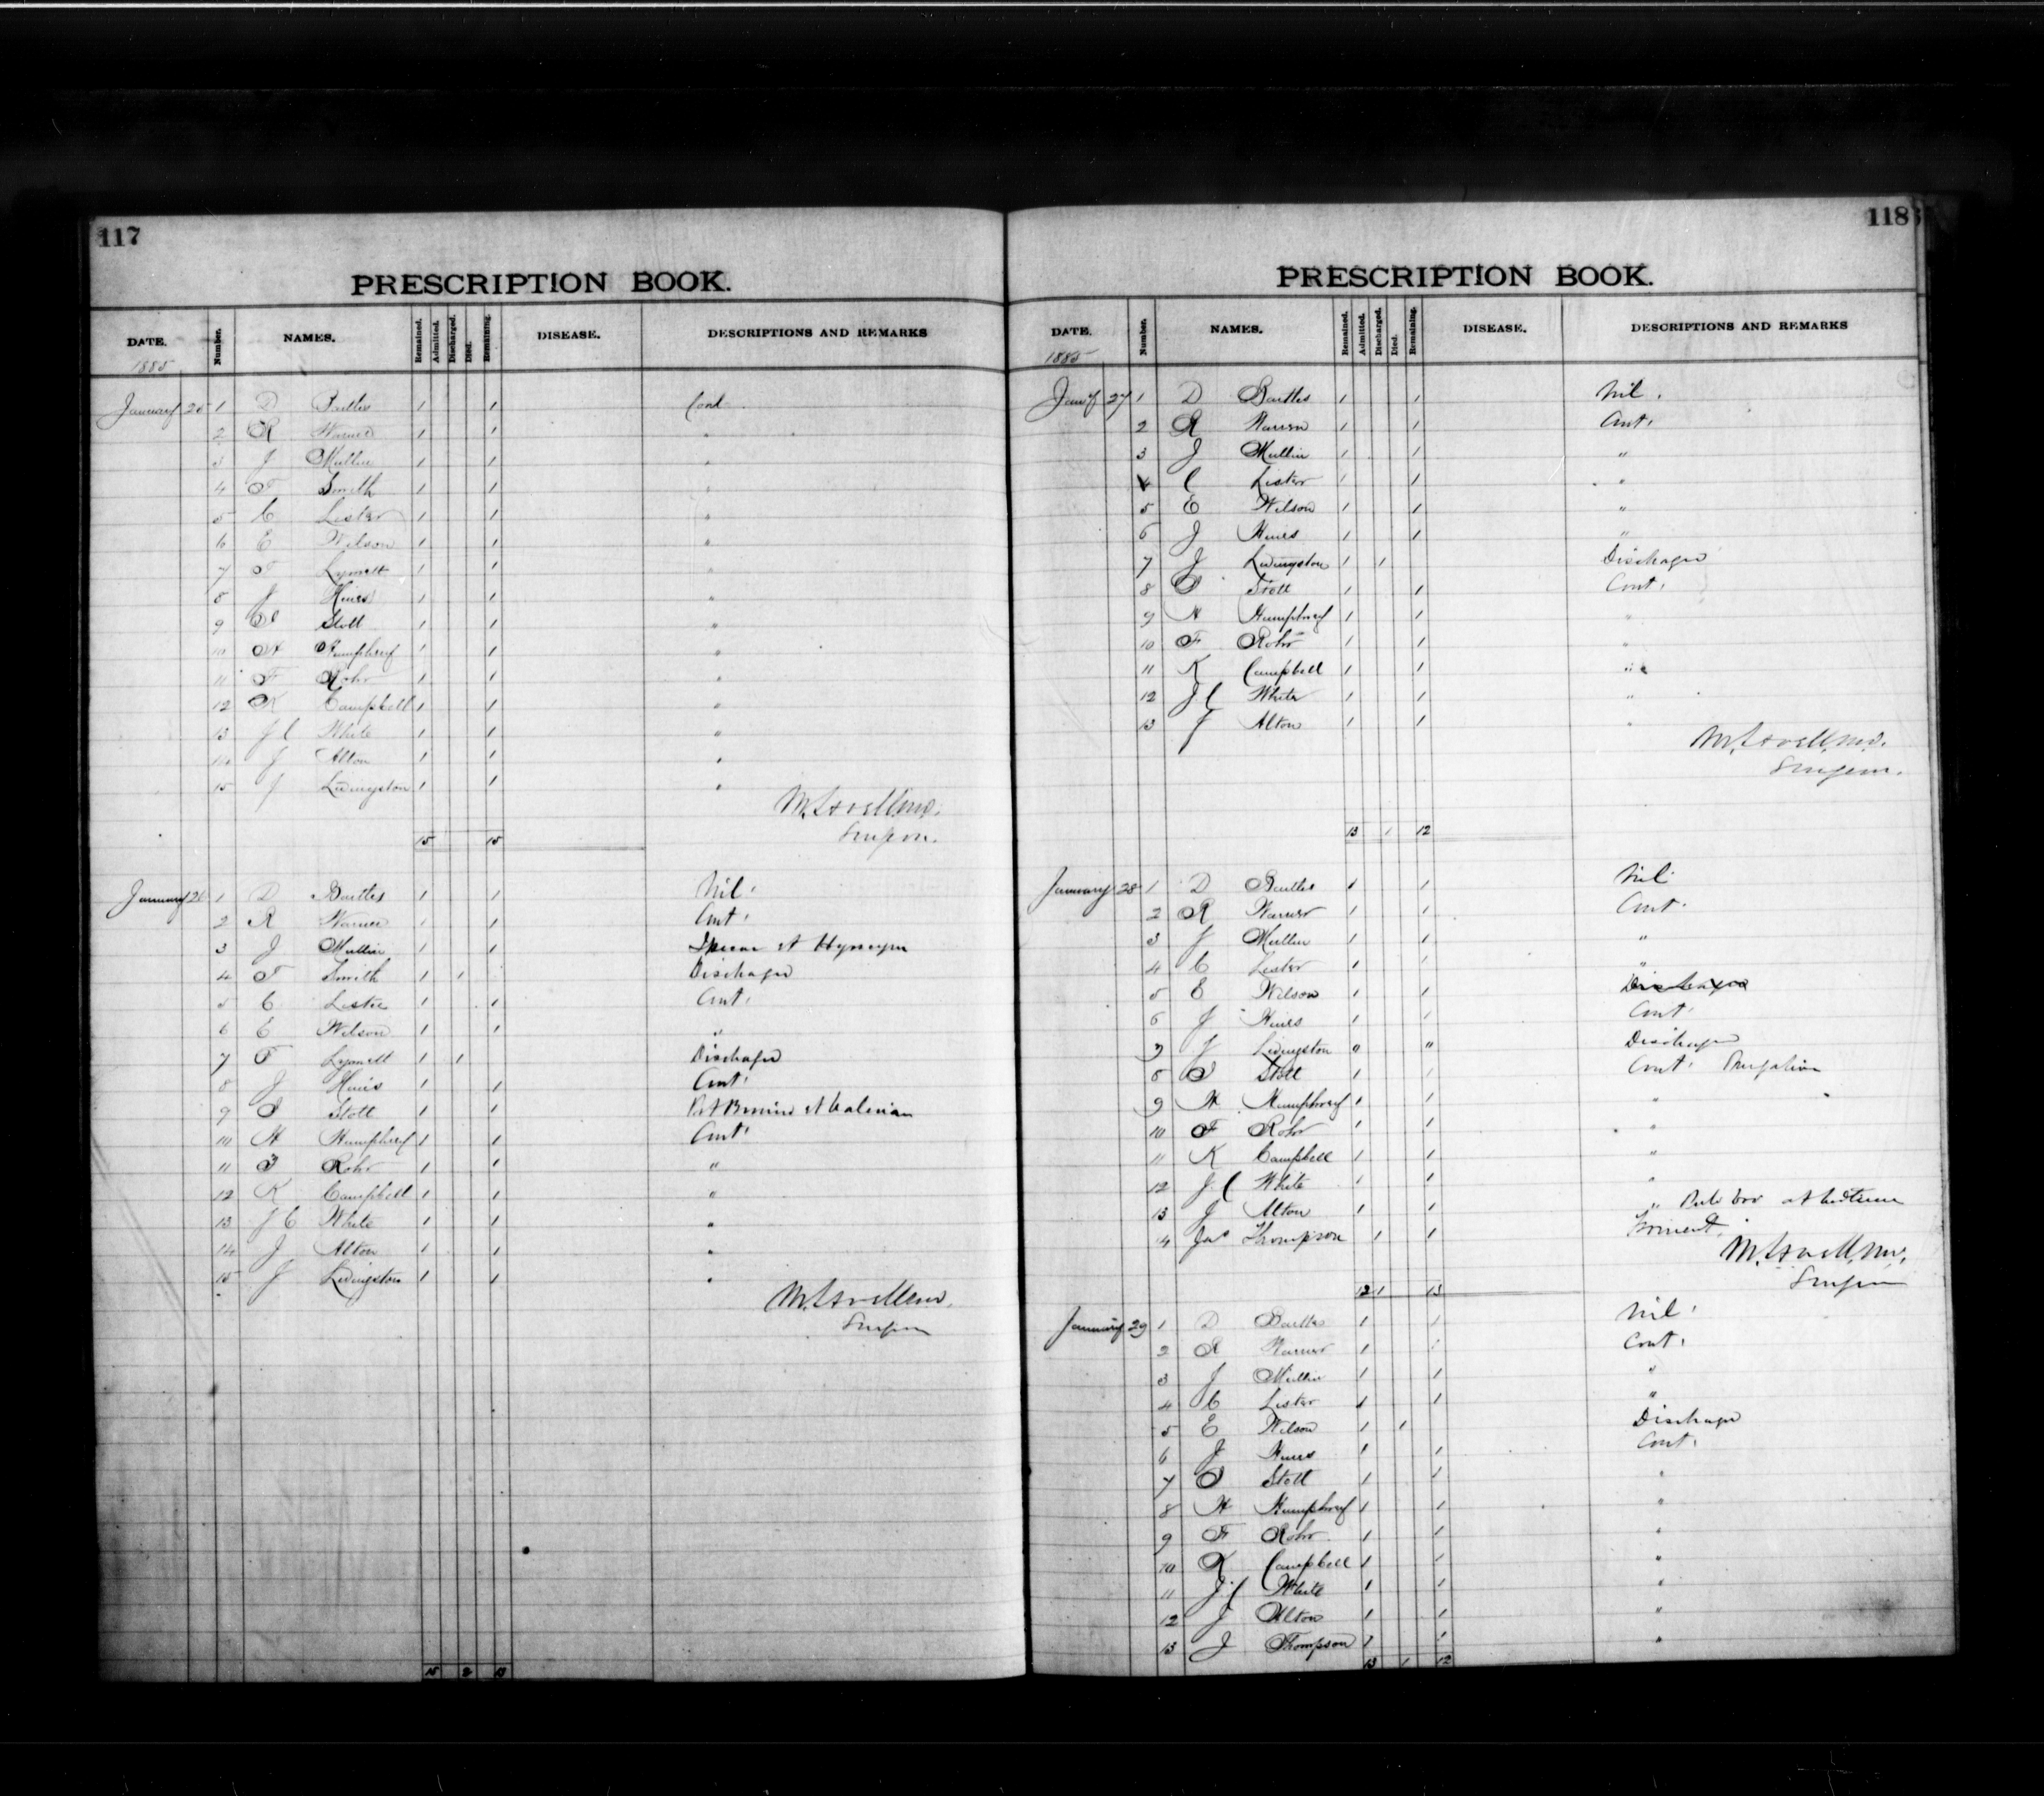 117
PRESCRIPTION BOOK.
DATE. Number. NAMES. Remained. Admitted. Discharged. Died. Remaining. DISEASE. DESCRIPTIONS AND REMARKS
1885
January 25 1 D Bartles 1 1 Cont
2 R Warner 1 1 "
3 J Mullin 1 1 "
4 F Smith 1 1 "
5 C Lister 1 1 "
6 E Wilson 1 1 "
7 F Lymett 1 1 "
8 J Hines 1 1 "
9 Stott 1 1 "
10 H Humphrey 1 1 "
11 F Rohr 1 1 "
12 K Campbell 1 1 "
13 J C White 1 1 "
14 J Alton 1 1 "
15 J Livingston 1 1 "
Surgeon.
15 15
January 26 1 D Bartles 1 1 Nil.
2 R Warner 1 1 Cont.
3 J Mullin 1 1
4 F Smith 1 1 Discharged
5 C Lister 1 1 Cont.
6 E Wilson 1 1 "
7 F Lymett 1 1 Discharged
8 J Hines 1 1 Cont.
9 Stott 1 1
10 H Humphrey 1 1 Cont.
11 F Rohr 1 1 "
12 K Campbell 1 1 "
13 J C White 1 1 "
14 J Alton 1 1 "
15 J Livingston 1 1 "
Surgeon
15 2 13
118
PRESCRIPTION BOOK.
DATE. Number. NAMES. Remained. Admitted. Discharged. Died. Remaining. DISEASE. DESCRIPTIONS AND REMARKS
1885
Jan'y 27 1 D Bartles 1 1 Nil.
2 R Warner 1 1 Cont.
3 J Mullin 1 1 "
4 C Lister 1 1 "
5 E Wilson 1 1 "
6 J Hines 1 1 "
7 J Livingston 1 1 Discharged
8 Stott 1 1 Cont.
9 H Humphrey 1 1 "
10 F Rohr 1 1 "
11 K Campbell 1 1 "
12 J C White 1 1 "
13 J Alton 1 1 "
Surgeon.
13 1 12
January 28 1 D Bartles 1 1 Nil
2 R Warner 1 1 Cont.
3 J Mullin 1 1 "
4 C Lister 1 1 "
5 E Wilson 1 1 Discharged
6 J Hines 1 1 Cont.
7 J Livingston " " Discharged
8 Stott 1 1 Cont.
9 H Humphrey 1 1 "
10 F Rohr 1 1 "
11 K Campbell 1 1 "
12 J C White 1 1 "
13 J Alton 1 1 "
4 Jas Thompson 1 1
Surgeon
12 1 13
January 29 1 D Bartles 1 1 Nil.
2 R Warner 1 1 Cont.
3 J Mullin 1 1 "
4 C Lister 1 1 "
5 E Wilson 1 1 Discharged
6 J Hines 1 1 Cont.
7 Stott 1 1 "
8 H Humphrey 1 1 "
9 F Rohr 1 1 "
10 K Campbell 1 1 "
11 J C White 1 1 "
12 J Alton 1 1 "
13 J Thompson 1 1 "
13 1 12